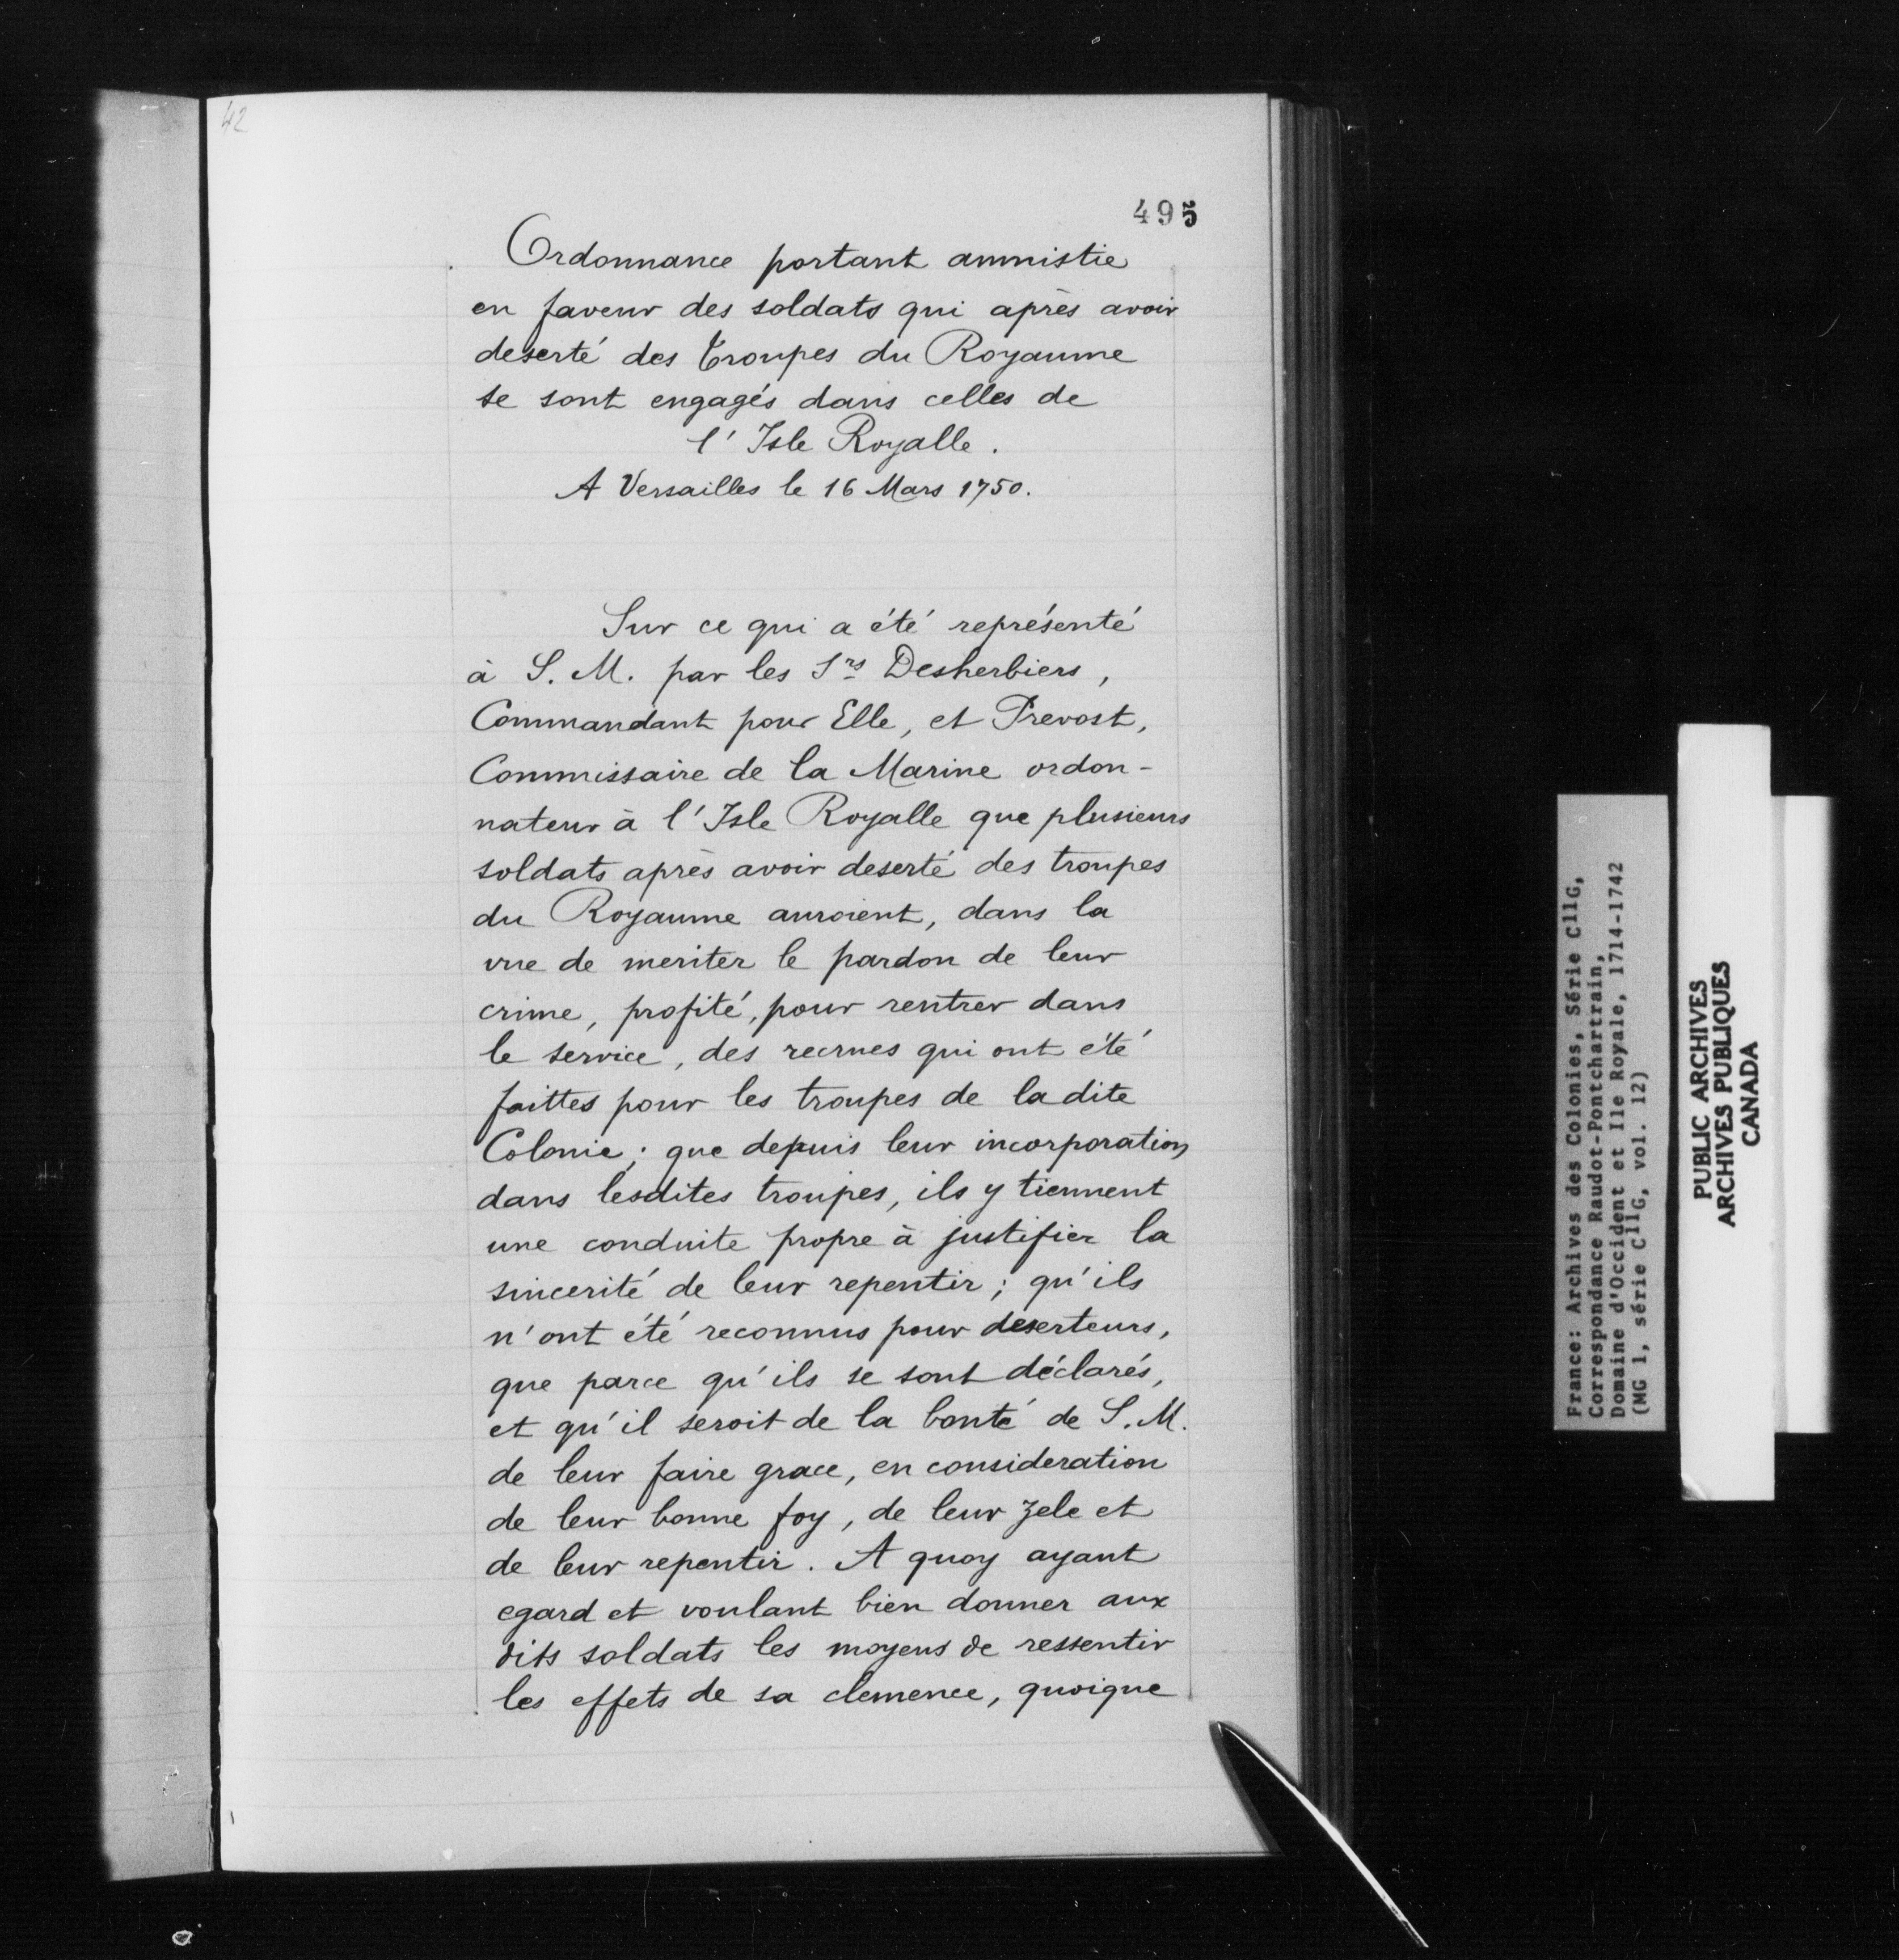 42
495
Ordonnance portant amnistie
en faveur des soldats qui après avoir
deserté des Troupes du Royaume
se sont engagés dans celles de
l'Isle Royalle.
A Versailles le 16 Mars 1750.
Sur ce qui a été représenté
à S. M. par les Srs Desherbiers,
Commandant pour Elle, et Prevost,
Commissaire de la Marine ordon-
nateur à l'Isle Royalle que plusieurs
soldats après avoir deserté des troupes
du Royaume auroient, dans la
vue de meriter le pardon de leur
crime, profité, pour rentrer dans
le service, des recrues qui ont été
faittes pour les troupes de ladite
Colonie; que depuis leur incorporation
dans lesdites troupes, ils y tiennent
une conduite propre à justifier la
sincerité de leur repentir; qu'ils
n'ont été reconnus pour deserteurs,
que parce qu'ils se sont déclarés,
et qu'il seroit de la bonté de S. M.
de leur faire grace, en consideration
de leur bonne foy, de leur zele et
de leur repentir. A quoy ayant
egard et voulant bien donner aux
dits soldats les moyens de ressentir
les effets de sa clemence, quoique
France: Archives des Colonies, Série C11G,
Correspondance Raudot-Pontchartrain,
Domaine d'Occident et Ile Royale, 1714-1742
(MG 1, série C11G, vol. 12)
PUBLIC ARCHIVES
ARCHIVES PUBLIQUES
CANADA